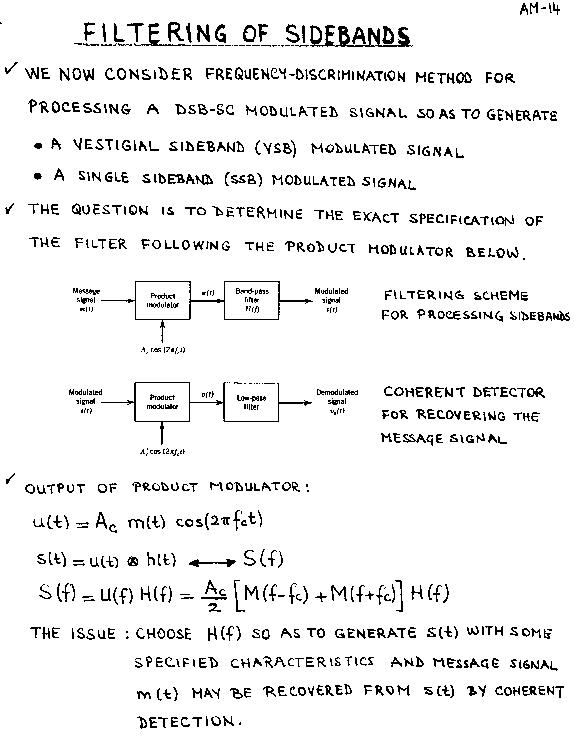 AM-14
FILTERING OF SIDEBANDS
✓ WE NOW CONSIDER FREQUENCY-DISCRIMINATION METHOD FOR
PROCESSING A DSB-SC MODULATED SIGNAL SO AS TO GENERATE
• A VESTIGIAL SIDEBAND (VSB) MODULATED SIGNAL
• A SINGLE SIDEBAND (SSB) MODULATED SIGNAL
✓ THE QUESTION IS TO DETERMINE THE EXACT SPECIFICATION OF
THE FILTER FOLLOWING THE PRODUCT MODULATOR BELOW.
Message signal m(t)
Product modulator
u(t)
Band-pass filter H(f)
Modulated signal s(t)
A_c cos (2πf_c t)
FILTERING SCHEME
FOR PROCESSING SIDEBANDS
Modulated signal s(t)
Product modulator
v(t)
Low-pass filter
Demodulated signal v_o(t)
A'_c cos (2πf_c t)
COHERENT DETECTOR
FOR RECOVERING THE
MESSAGE SIGNAL
✓ OUTPUT OF PRODUCT MODULATOR:
u(t) = A_c m(t) cos(2πf_c t)
s(t) = u(t) ⊗ h(t) ⟷ S(f)
S(f) = U(f) H(f) = A_c/2 [M(f-f_c) + M(f+f_c)] H(f)
THE ISSUE : CHOOSE H(f) SO AS TO GENERATE s(t) WITH SOME
SPECIFIED CHARACTERISTICS AND MESSAGE SIGNAL
m(t) MAY BE RECOVERED FROM s(t) BY COHERENT
DETECTION.